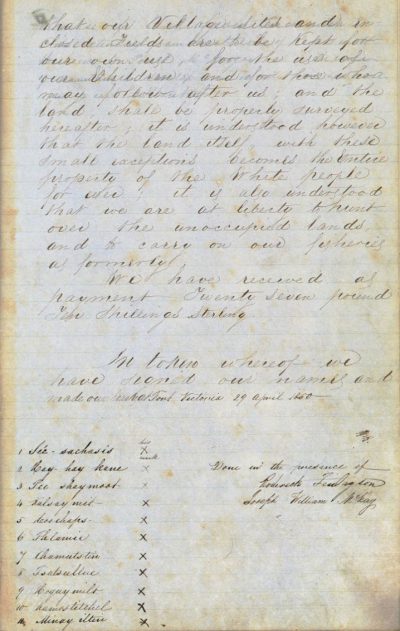 that our Village sites and in-
closed Fields are to be kept for
our own use, for the use of
our Children, and for those who
may follow after us; and the
land shall be properly surveyed
hereafter; it is understood however
that the land itself with these
small exceptions becomes the Entire
property of the White people
for ever; it is also understood
that we are at liberty to hunt
over the unoccupied lands,
and to carry on our fisheries
as formerly.
We have received as
payment Twenty Seven pound
Ten Shillings Sterling.
In token whereof we
have signed our names and
made our marks Fort Victoria 29 April 1850
his
mark
1 See-sachasis X
2 Hay hay kane X
3 Pee shaymoot X
4 Kalsaymit X
5 Coochaps X
6 Thlamie X
7 Chamutstin X
8 Tsatsulluc X
9 Hoquymilt X
10 Kamostitchel X
11 Minayiltin X
Done in the presence of
Roderick Finlayson
Joseph William McKay